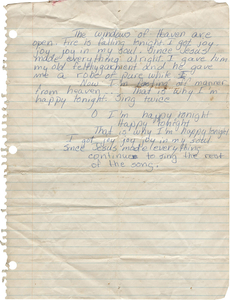 The windows of Heaven are
open. Fire is falling tonight I got joy
joy, joy in my soul. Since Jesus
made everything alright. I gave him
my old tethry garment and he gave
me a robe of pure white I
Now I'm feeling on manner
from heaven. That is why I'm
happy tonight. Sing twice
O I'm happy tonight
Happy tonight
That is why I'm happy tonight
I got joy joy joy in my soul
Since Jesus made everything
continue to sing the rest
of the song.